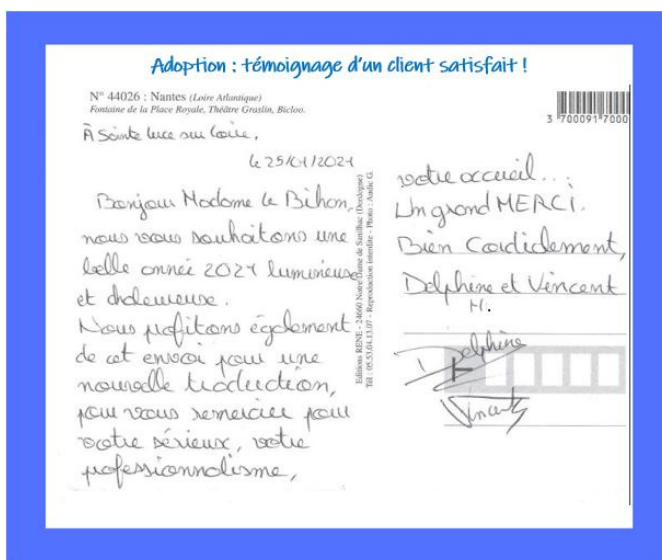 Adoption : témoignage d'un client satisfait !
N° 44026 : Nantes (Loire Atlantique)
Fontaine de la Place Royale, Théâtre Graslin, Bicloo.
3 700091 7000
À Sainte Luce sur Loire,
le 25/01/2021
Bonjour Madame Le Bihon,
nous vous souhaitons une
belle année 2021 lumineuse
et chaleureuse.
Nous profitons également
de cet envoi pour une
nouvelle traduction,
pour vous remercier pour
votre sérieux, votre
professionnalisme,
Editions RENE - 24660 Notre Dame de Sanilhac (Dordogne)
Tél : 05.53.04.13.07 - Reproduction interdite - Photo : Audic G.
votre accueil...
Un grand MERCI.
Bien Cordialement,
Delphine et Vincent
H.
Delphine
Vincent